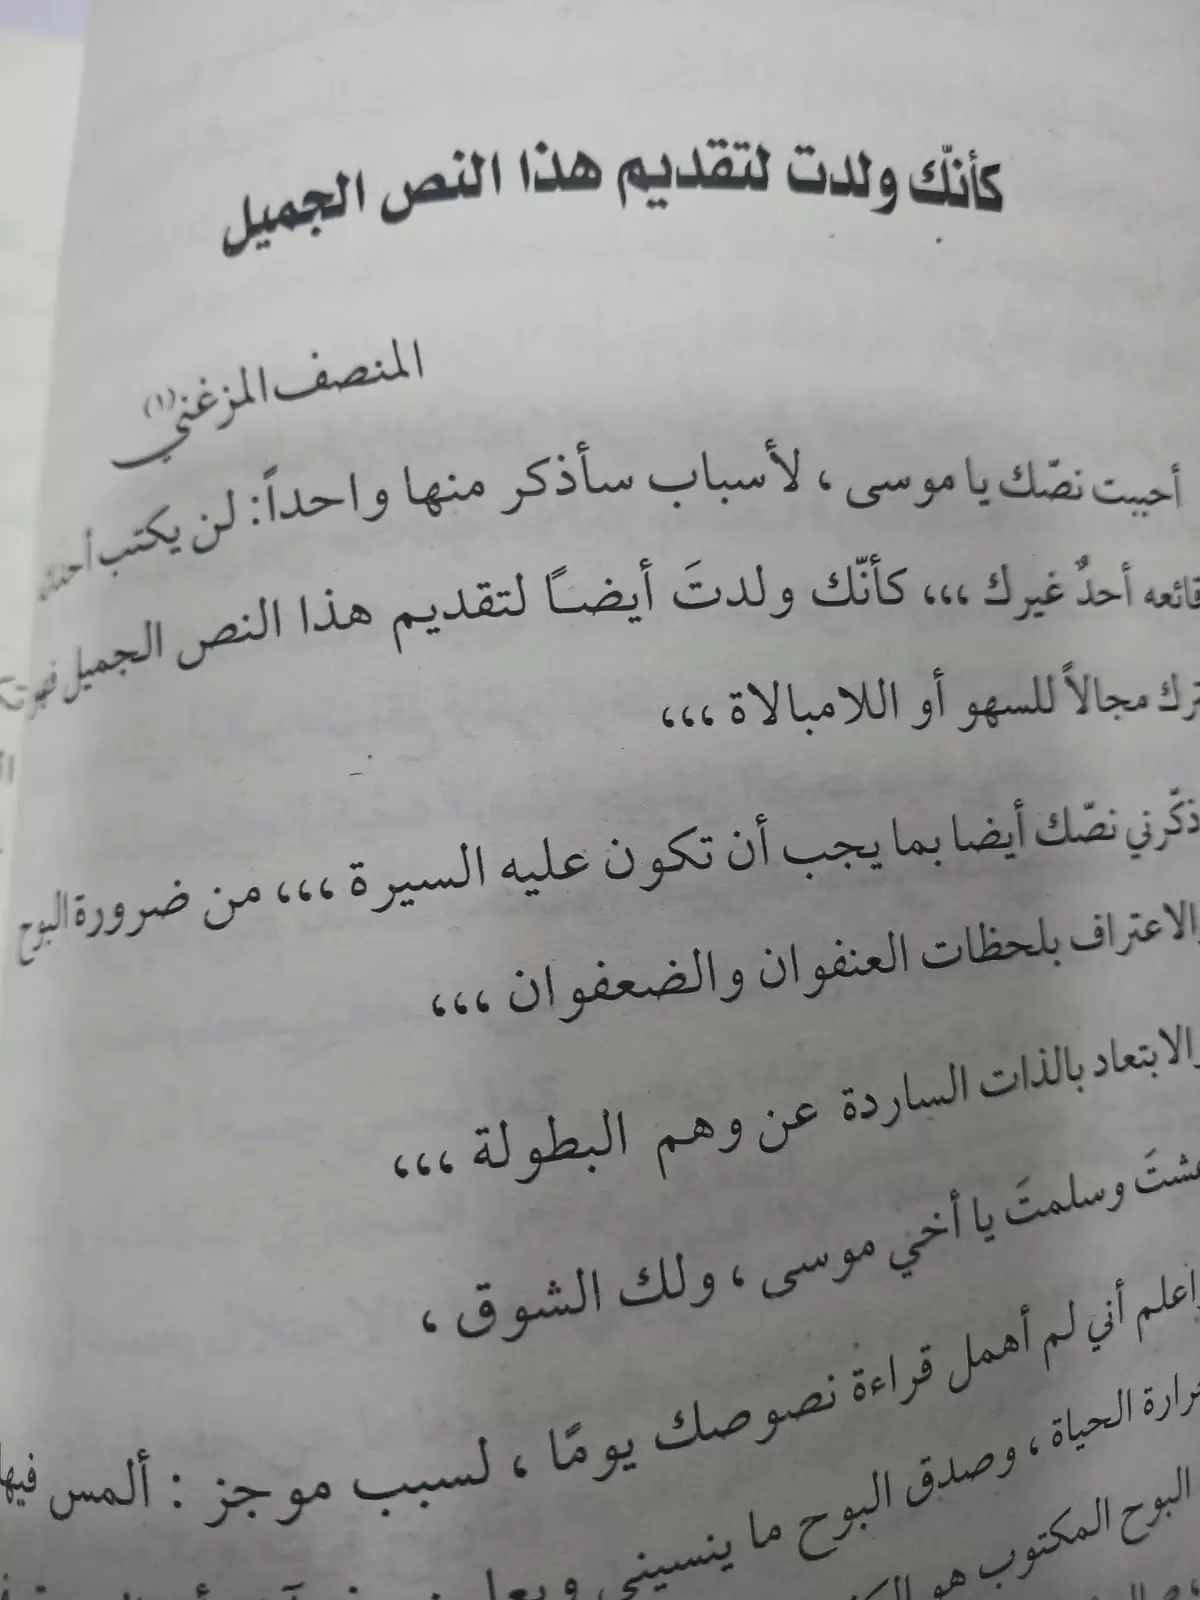 كأنّك ولدت لتقديم هذا النص الجميل
المنصف المزغني (١)
أحببت نصّك يا موسى ، لأسباب سأذكر منها واحداً: لن يكتب
أحدٌ غيرك ،،، كأنّك ولدتَ أيضًا لتقديم هذا النص الجميل
مجالاً للسهو أو اللامبالاة ،،،
ذكّرني نصّك أيضا بما يجب أن تكون عليه السيرة ،،، من ضرورة البوح
والاعتراف بلحظات العنفوان والضعفوان ،،،
والابتعاد بالذات الساردة عن وهم البطولة ،،،
عشتَ وسلمتَ يا أخي موسى ، ولك الشوق ،
واعلم أني لم أهمل قراءة نصوصك يومًا ، لسبب موجز : ألمس فيها
حرارة الحياة ، وصدق البوح ما ينسيني
البوح المكتوب هو